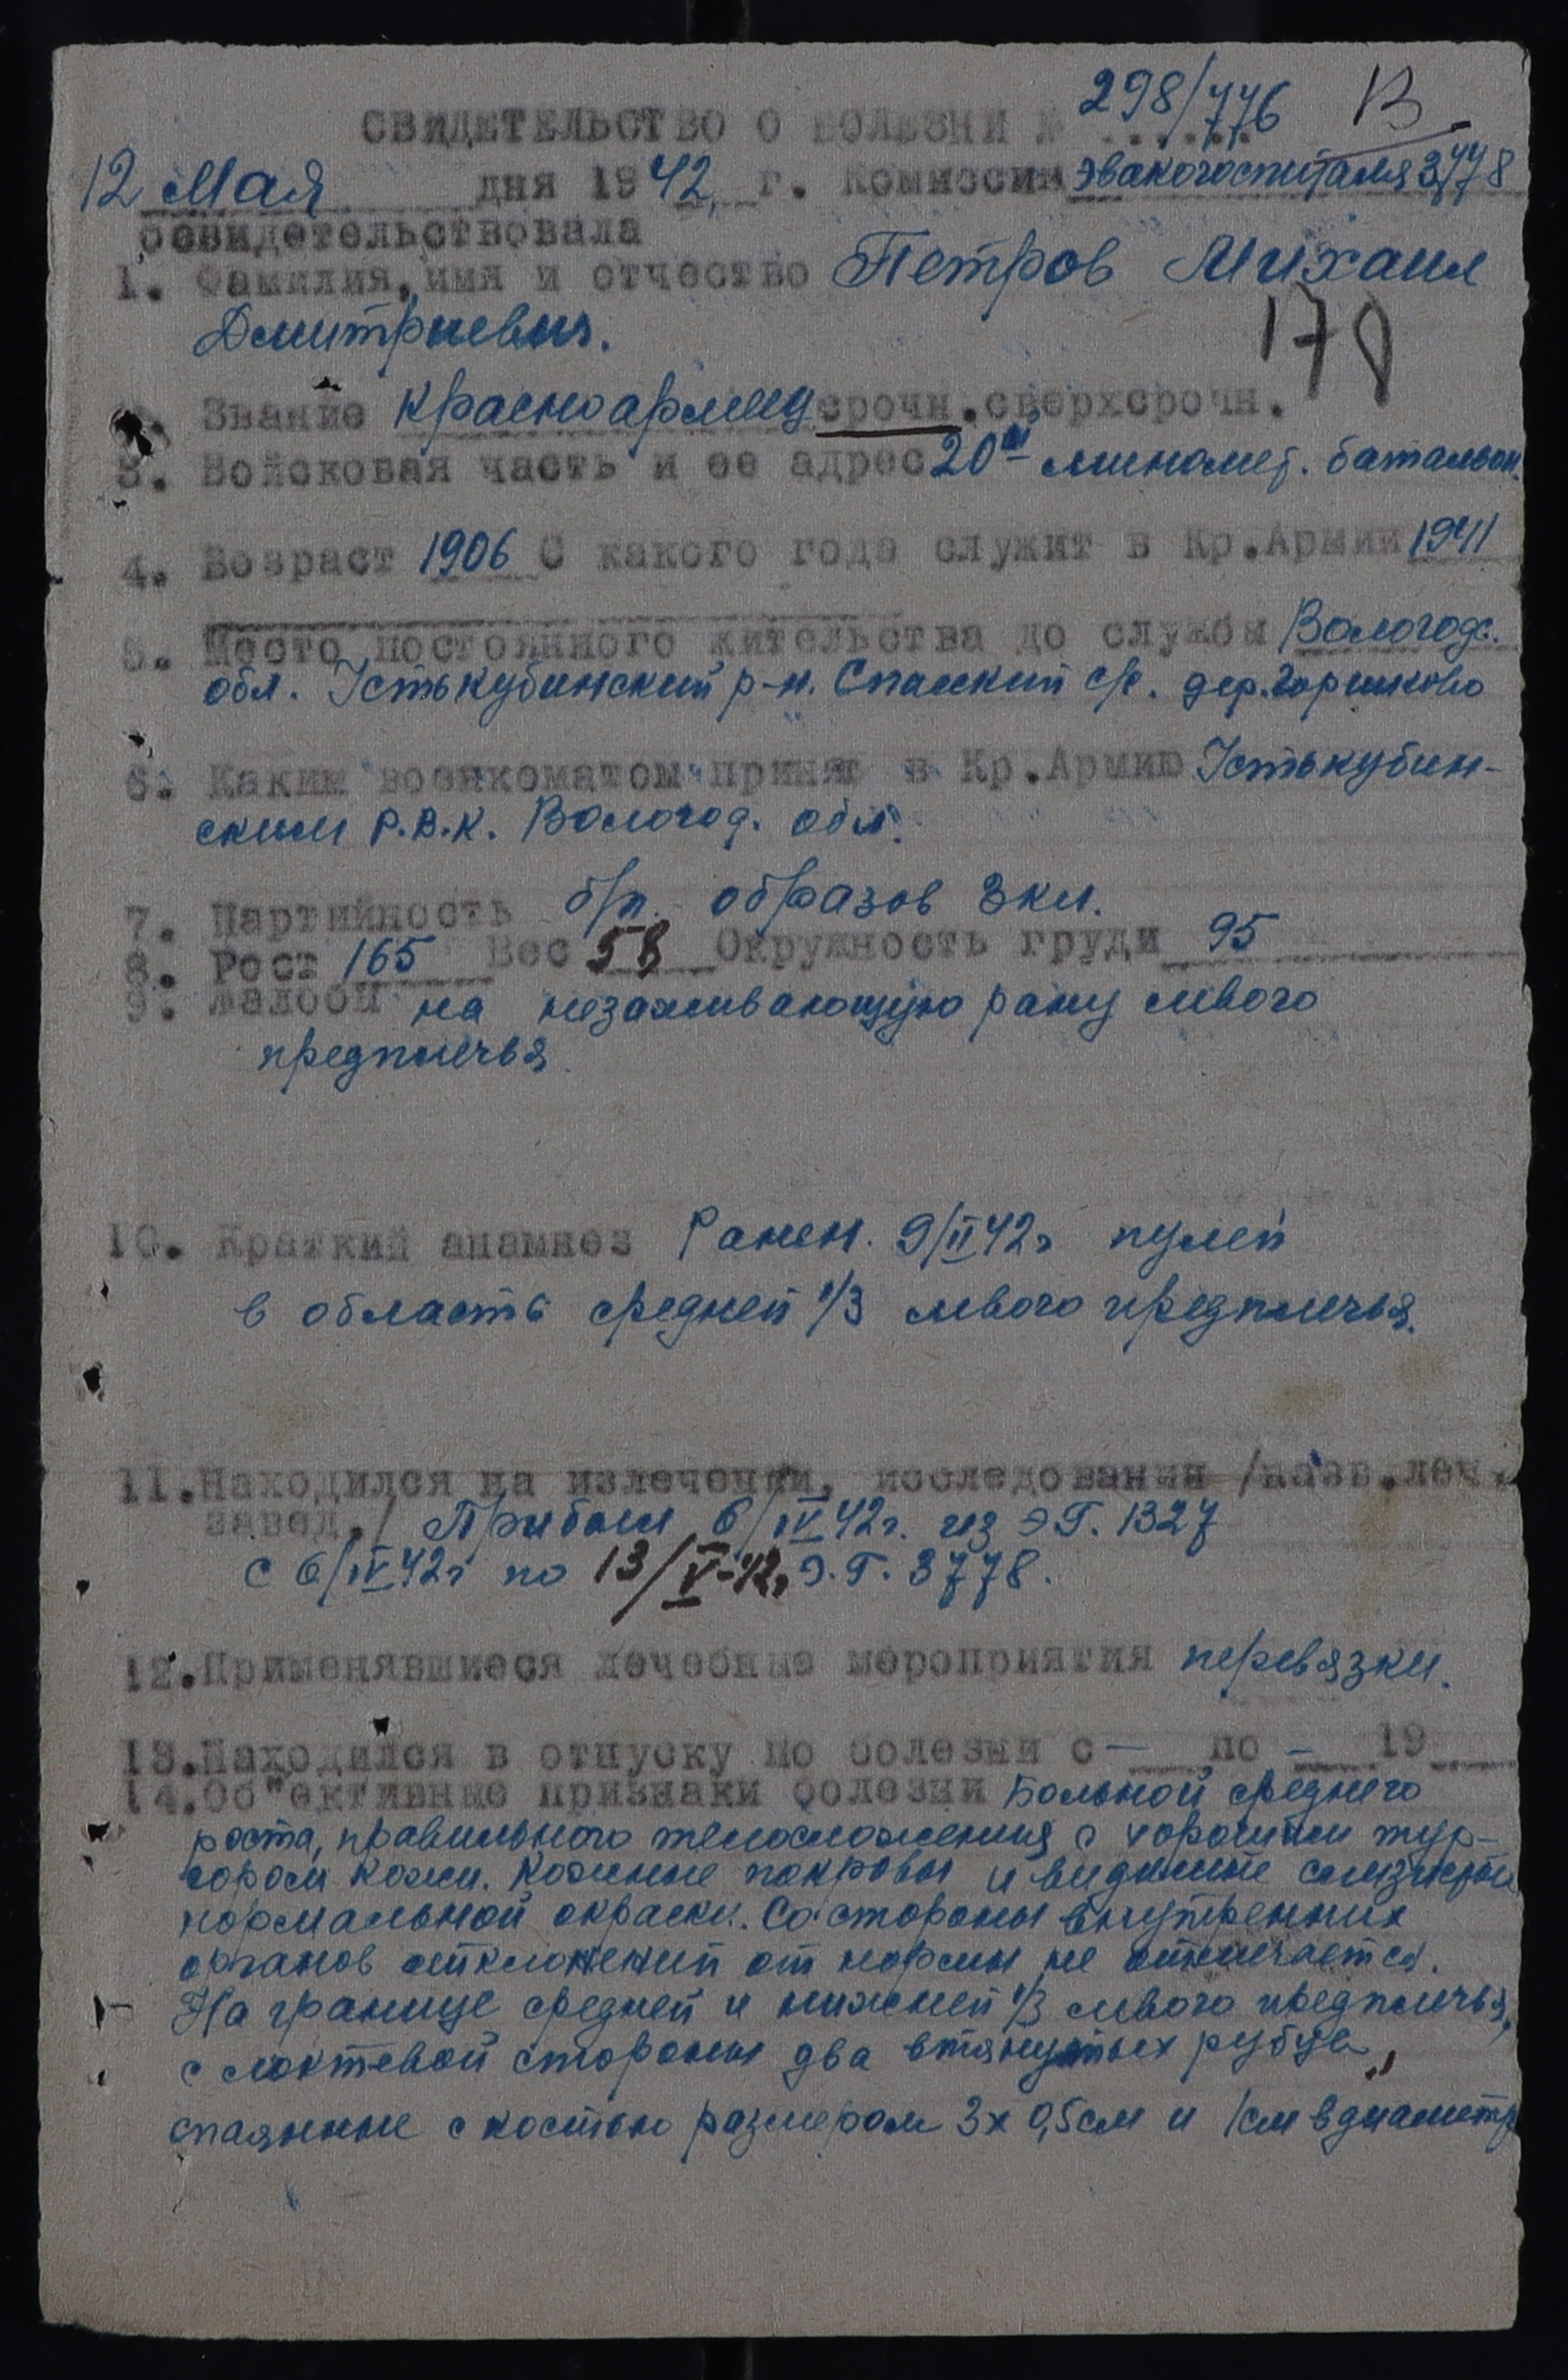 298/776 В
СВИДЕТЕЛЬСТВО О БОЛЕЗНИ №
12 Мая дня 1942, г. Комиссия эвакогоспиталя 3778
освидетельствовала
1. Фамилия, имя и отчество Петров Михаил
Дмитриевич.
178
2. Звание красноармеец срочн. сверхсрочн.
3. Войсковая часть и ее адрес 20ый миномет. батальон.
4. Возраст 1906 С какого года служит в Кр.Армии 1941
5. Место постоянного жительства до службы Вологодс.
обл. Устькубинский р-н. Спасский с/с. дер. Горшково
6. Каким военкоматом принят в Кр.Армию Устькубин-
ским Р.В.К. Вологод. обл.
7. Партийность б/п. образов 3 кл.
8. Рост 165 Вес 58 Окружность груди 95
9. Жалобы на незаживающую рану левого
предплечья.
10. Краткий анамнез Ранен. 9/II 42г пулей
в область средней 1/3 левого предплечья.
11. Находился на излечении, исследовании /назв. леч.
завед./ Прибыл 6/IV 42г. из Э.Г. 1327
с 6/IV 42г по 13/V-42г Э.Г. 3778.
12. Применявшиеся лечебные мероприятия перевязки.
13. Находился в отпуску по болезни с — по - 19
14. Об"ективные признаки болезни Больной среднего
роста, правильного телосложения с хорошим тур-
гором кожи. Кожные покровы и видимые слизистые
нормальной окраски. Со стороны внутренних
органов отклонений от нормы не отмечается.
На границе средней и нижней 1/3 левого предплечья,
с локтевой стороны два втянутых рубца,
спаянные с костью размером 3х0,5см и 1см в диаметр